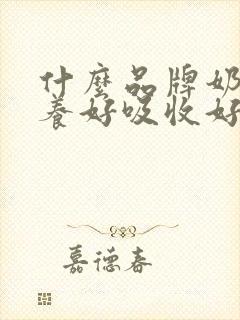 什麼品牌奶
養好吸收好
嘉德春